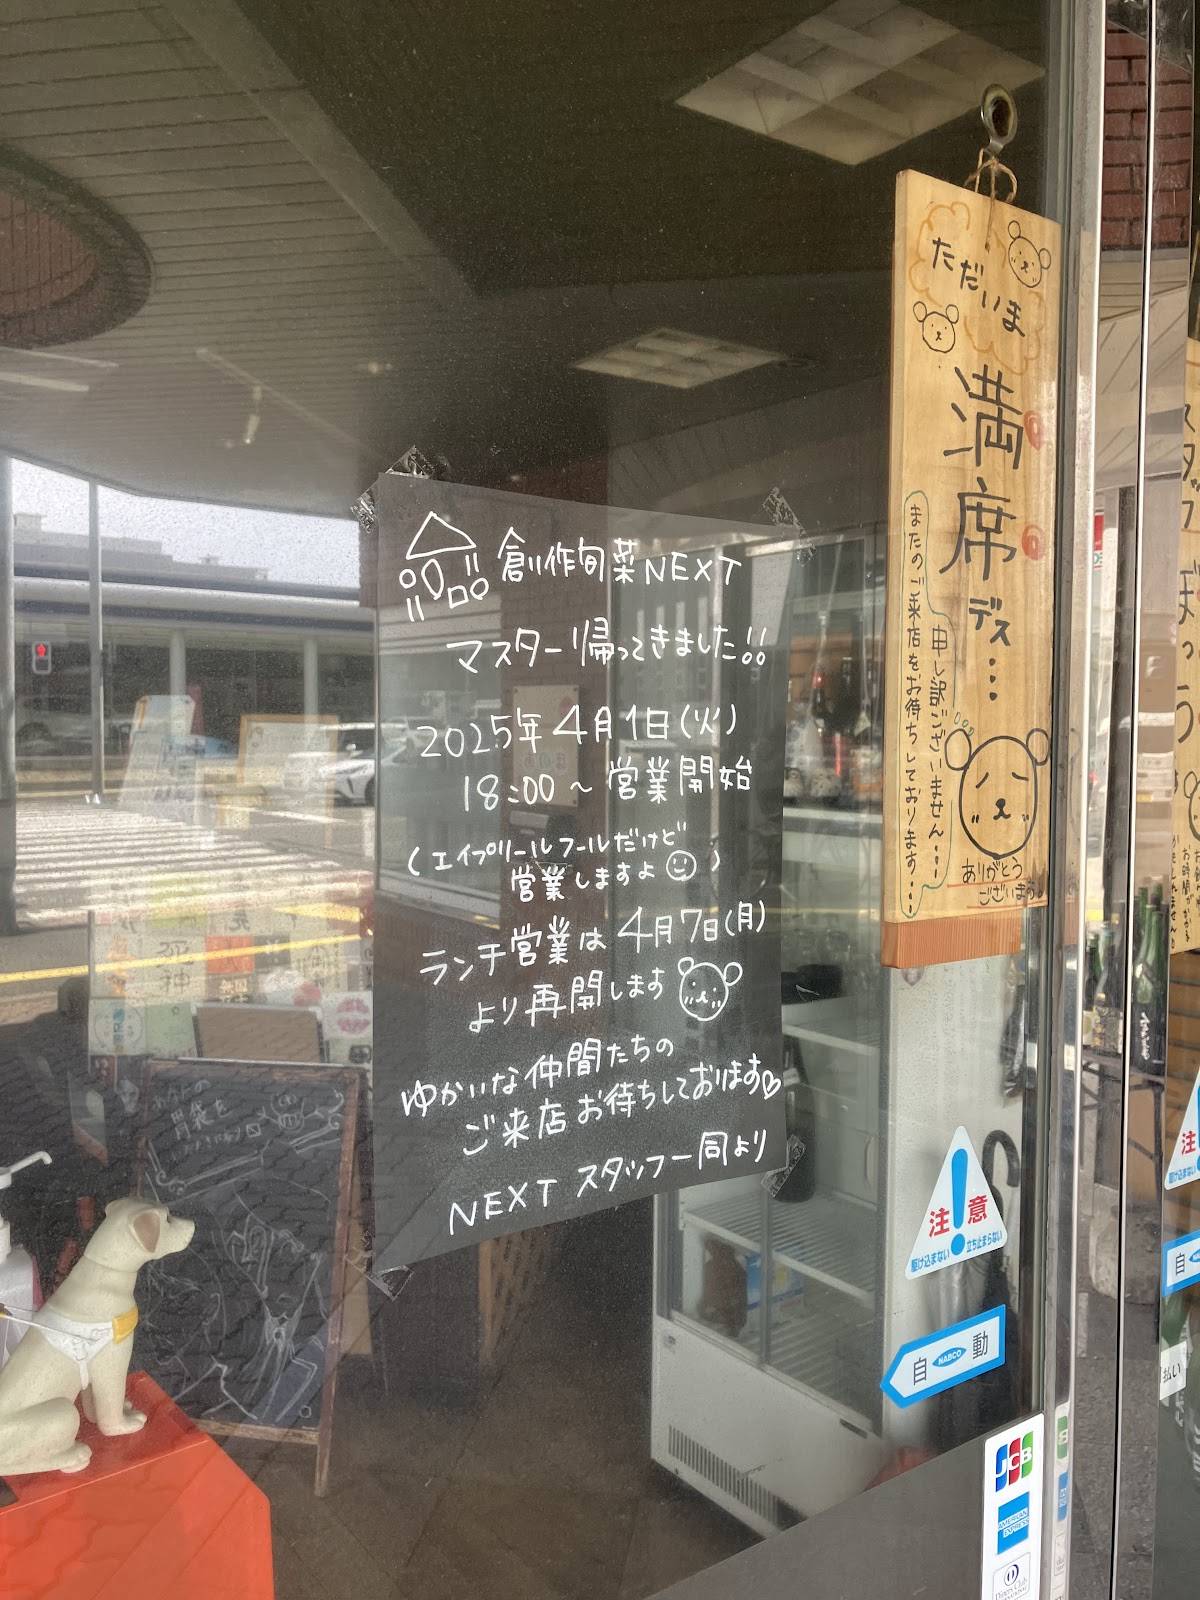 創作旬菜NEXT
マスター帰ってきました!!
2025年4月1日(火)
18:00～営業開始
(エイプリールフールだけど
営業しますよ☺)
ランチ営業は4月7日(月)
より再開します
ゆかいな仲間たちの
ご来店お待ちしております♡
NEXTスタッフ一同より
ただいま
満席デス…
申し訳ございません…
またのご来店をお待ちしております…
ありがとう
ございます
スタッフ
注意
駆け込まない 立ち止まらない
自動
NABCO
JCB
AMERICAN EXPRESS
Diners Club
注
自
払い
胃袋を